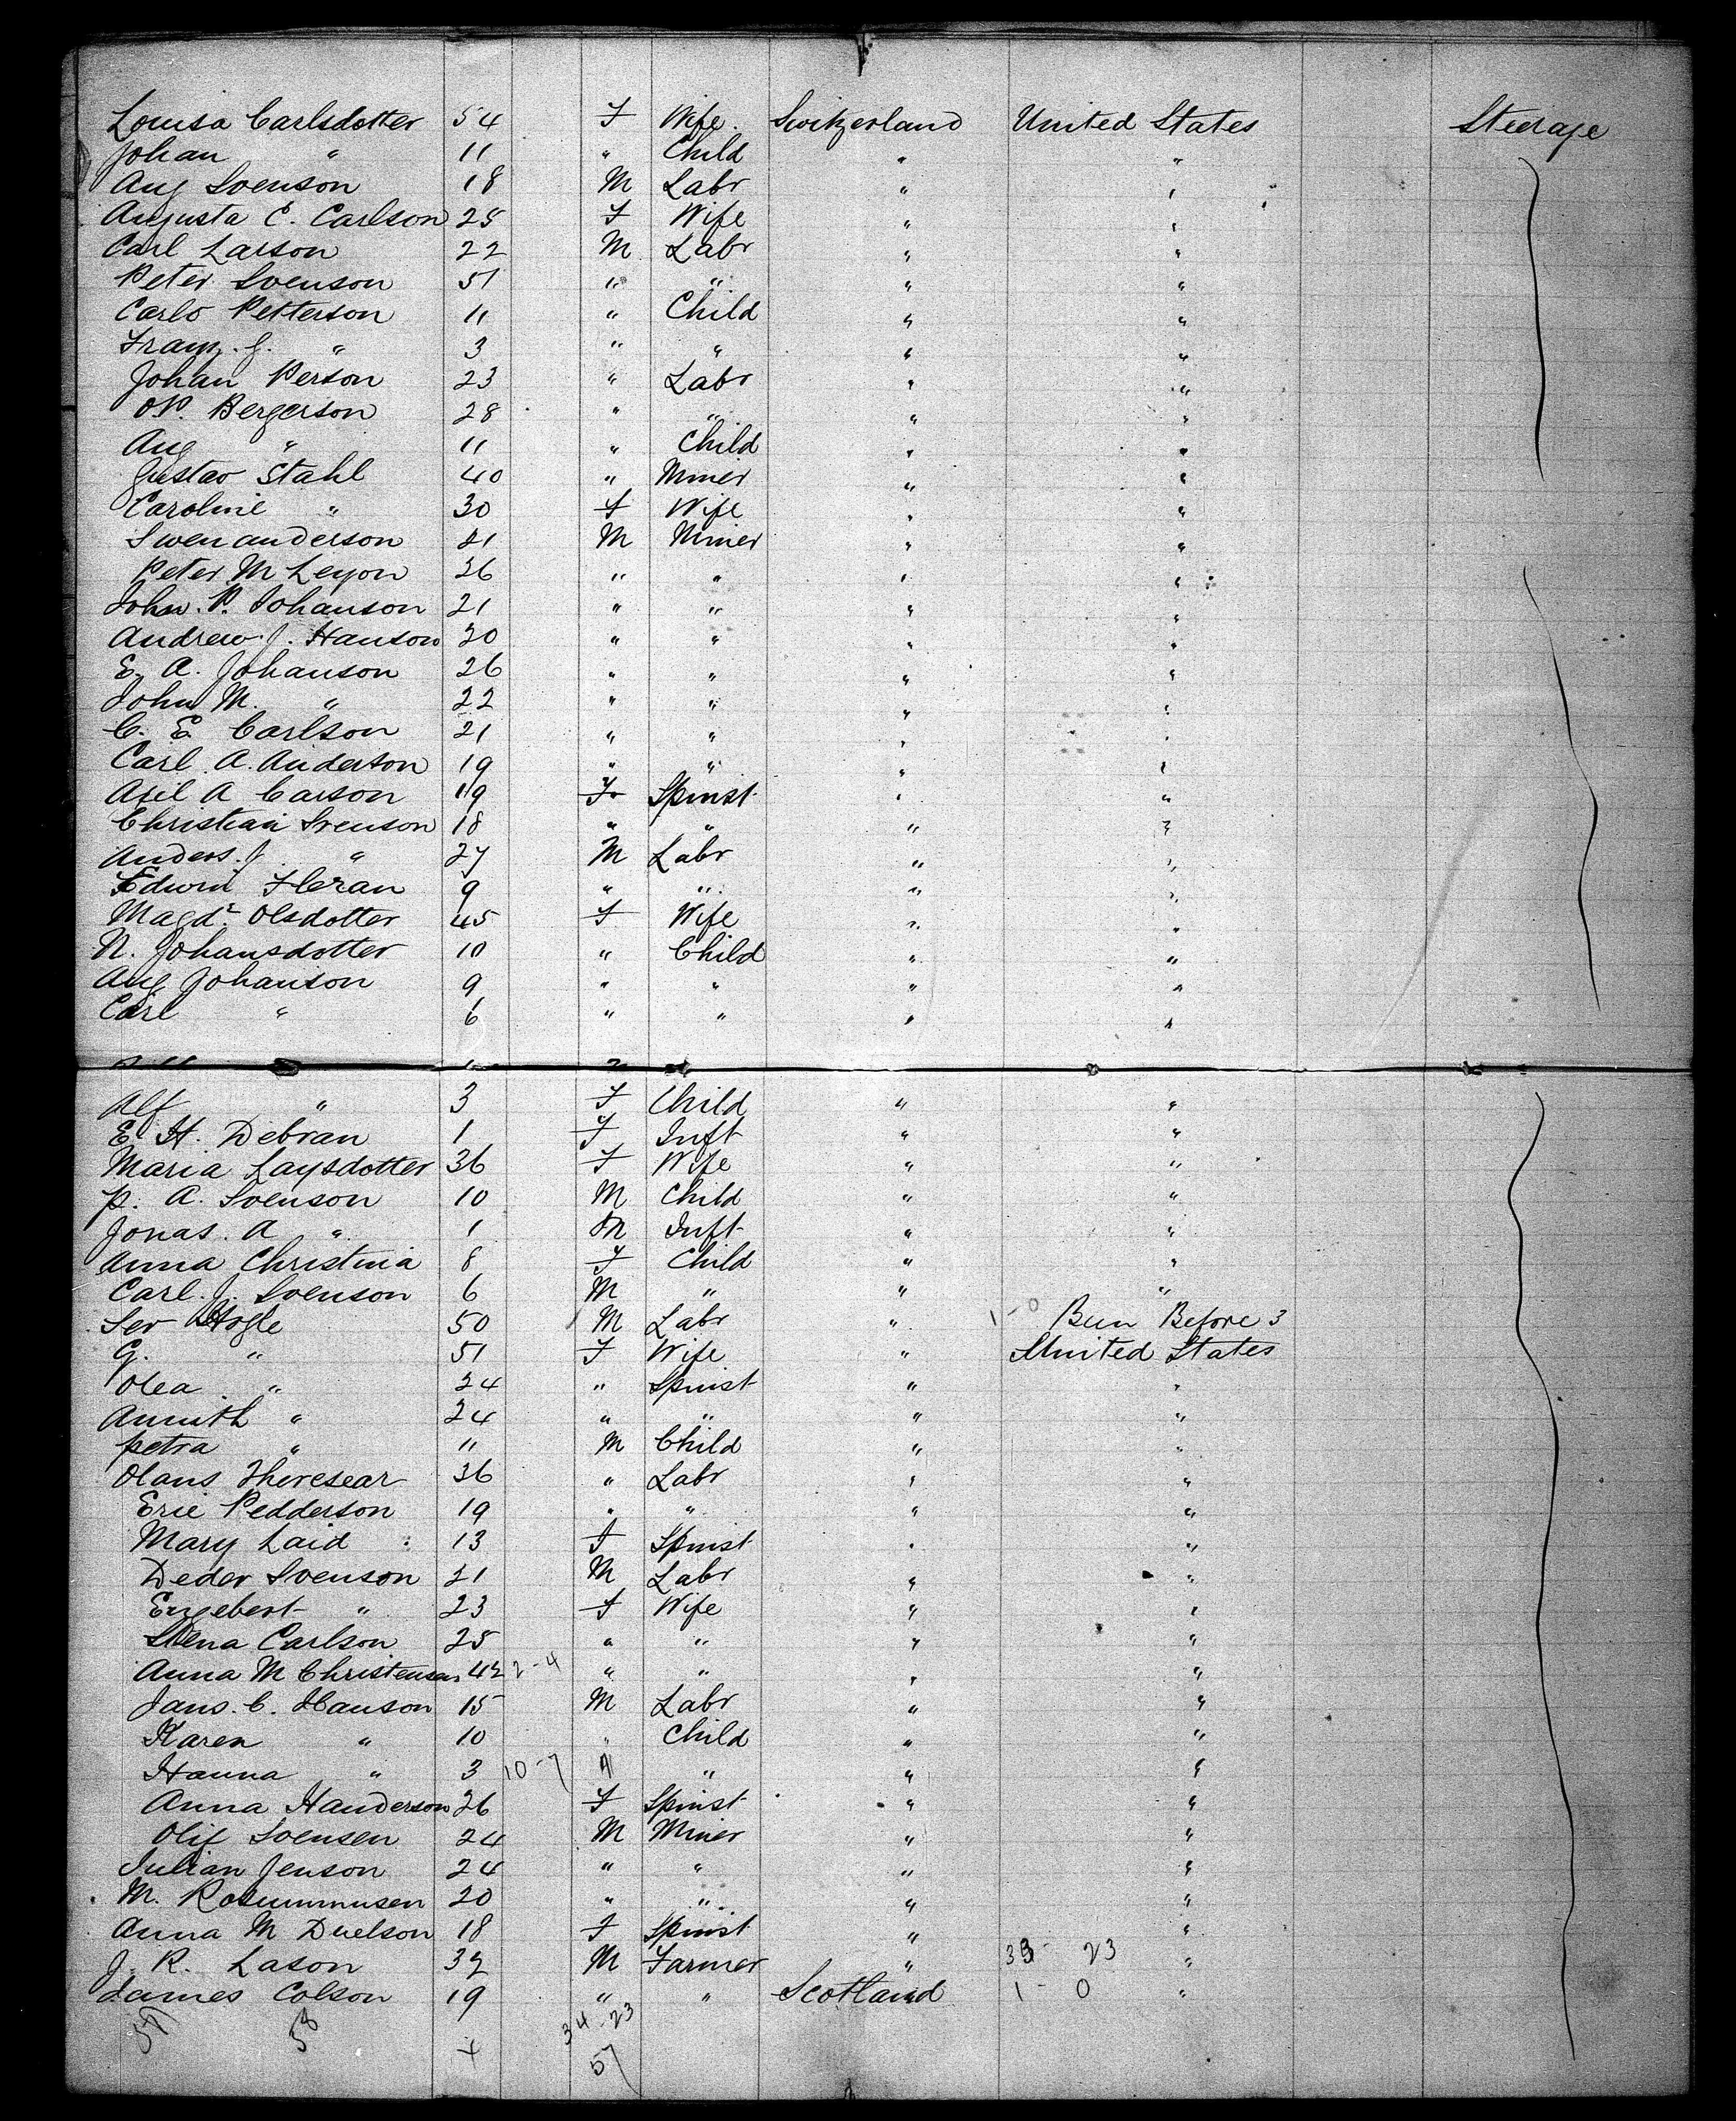 Louisa Carlsdotter 54 F Wife Switzerland United States Steerage
Johan " 11 " Child " "
Aug Svenson 18 M Labr " "
Augusta C. Carlson 25 F Wife " "
Carl Larson 22 M Labr " "
Peter Svenson 51 " " " "
Carlo Petterson 11 " Child " "
Franz. J. " 3 " " " "
Johan Person 23 " Labr " "
O.P. Bergerson 28 " " " "
Aug " 11 " Child " "
Gustav Stahl 40 " Miner " "
Caroline " 30 F Wife " "
Swen anderson 21 M Miner " "
Peter M Leyon 36 " " " "
John. P. Johanson 21 " " " "
Andrew J. Hanson 20 " " " "
E. A. Johanson 26 " " " "
John M. " 22 " " " "
C. E. Carlson 21 " " " "
Carl A. Anderson 19 " " " "
Axil A Carson 19 F Spinst " "
Christian Svenson 18 " " " "
Anders. J. " 27 M Labr " "
Edwin 9 " " " "
Magd. Olsdotter 45 F Wife " "
N. Johansdotter 10 " Child " "
Aug Johanson 9 " " " "
Carl " 6 " " " "
Alf " 3 F Child " "
E. H. Debran 1 F Inft " "
Maria Laysdotter 36 F Wife " "
P. A. Svenson 10 M Child " "
Jonas. A " 1 M Inft " "
Anna Christina 8 F Child " "
Carl. J. Svenson 6 M " " "
Ser Hogle 50 M Labr " 1-0 Been Before 3
G. " 51 F Wife " United States
Olea " 24 " Spinst " "
Annith " 24 " " " "
Petra " 11 M Child " "
Olans Theresear 36 " Labr " "
Eric Pedderson 19 " " " "
Mary Laid 13 F Spinst " "
Deder Svenson 21 M Labr " "
Engebert " 23 F Wife " "
Stena Carlson 25 " " " "
Anna M Christensen 42 2-4 " " " "
Jans. C. Hanson 15 M Labr " "
Karen " 10 " Child " "
Hanna " 3 10-7 " " "
Anna Handerson 26 F Spinst " "
Olif Svensen 24 M Miner " "
Julian Jenson 24 " " " "
M. Rosummusen 20 " " " "
Anna M Duelson 18 F Spinst " "
J. R. Lason 32 M Farmer " 33- 23 "
James Colson 19 " " Scotland 1- 0 "
57 58 + 34-23
57